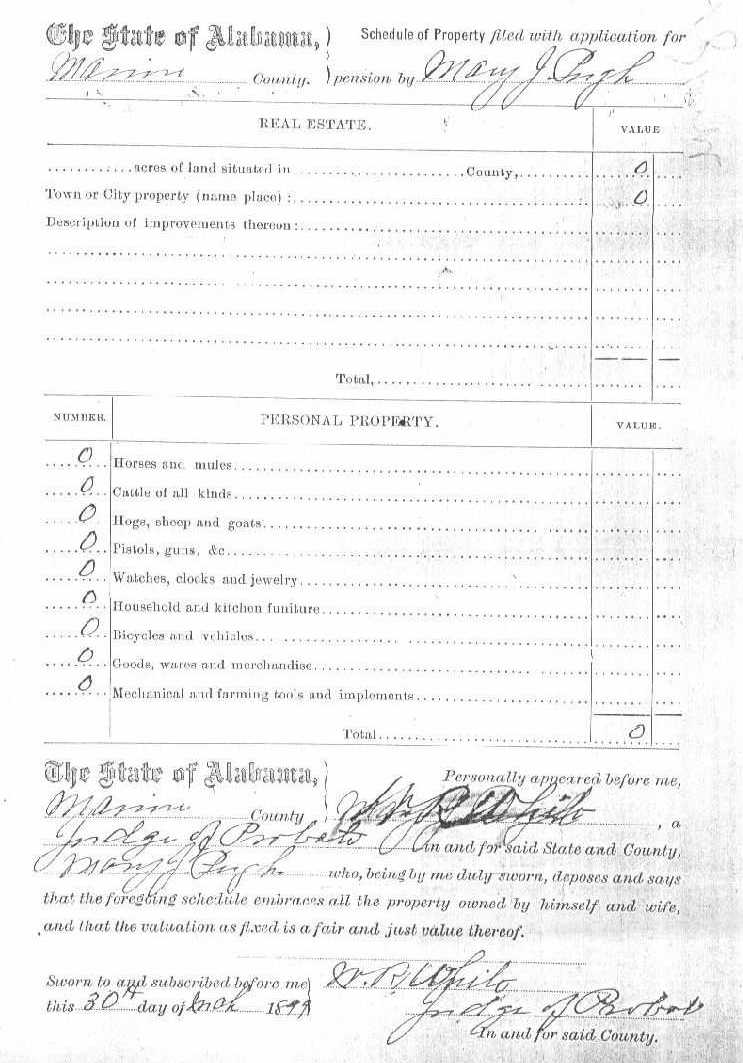 The State of Alabama, } Schedule of Property filed with application for
Marion County. } pension by Mary J. Pugh
REAL ESTATE. VALUE
............acres of land situated in ........................County,........ 0
Town or City property (name place) :........................ 0
Description of improvements thereon:........................
Total,........................
NUMBER. PERSONAL PROPERTY. VALUE.
0 Horses and mules........................
0 Cattle of all kinds........................
0 Hogs, sheep and goats........................
0 Pistols, guns, &c........................
0 Watches, clocks and jewelry........................
0 Household and kitchen funiture........................
0 Bicycles and vehicles........................
0 Goods, wares and merchandise........................
0 Mechanical and farming tools and implements........................
Total........................ 0
The State of Alabama, } Personally appeared before me,
Marion County } W. R. White , a
Judge of Probate in and for said State and County,
Mary J Pugh who, being by me duly sworn, deposes and says
that the foregoing schedule embraces all the property owned by himself and wife,
and that the valuation as fixed is a fair and just value thereof.
Sworn to and subscribed before me } W. R. White
this 30th day of Mch 1899 Judge of Probate
In and for said County.